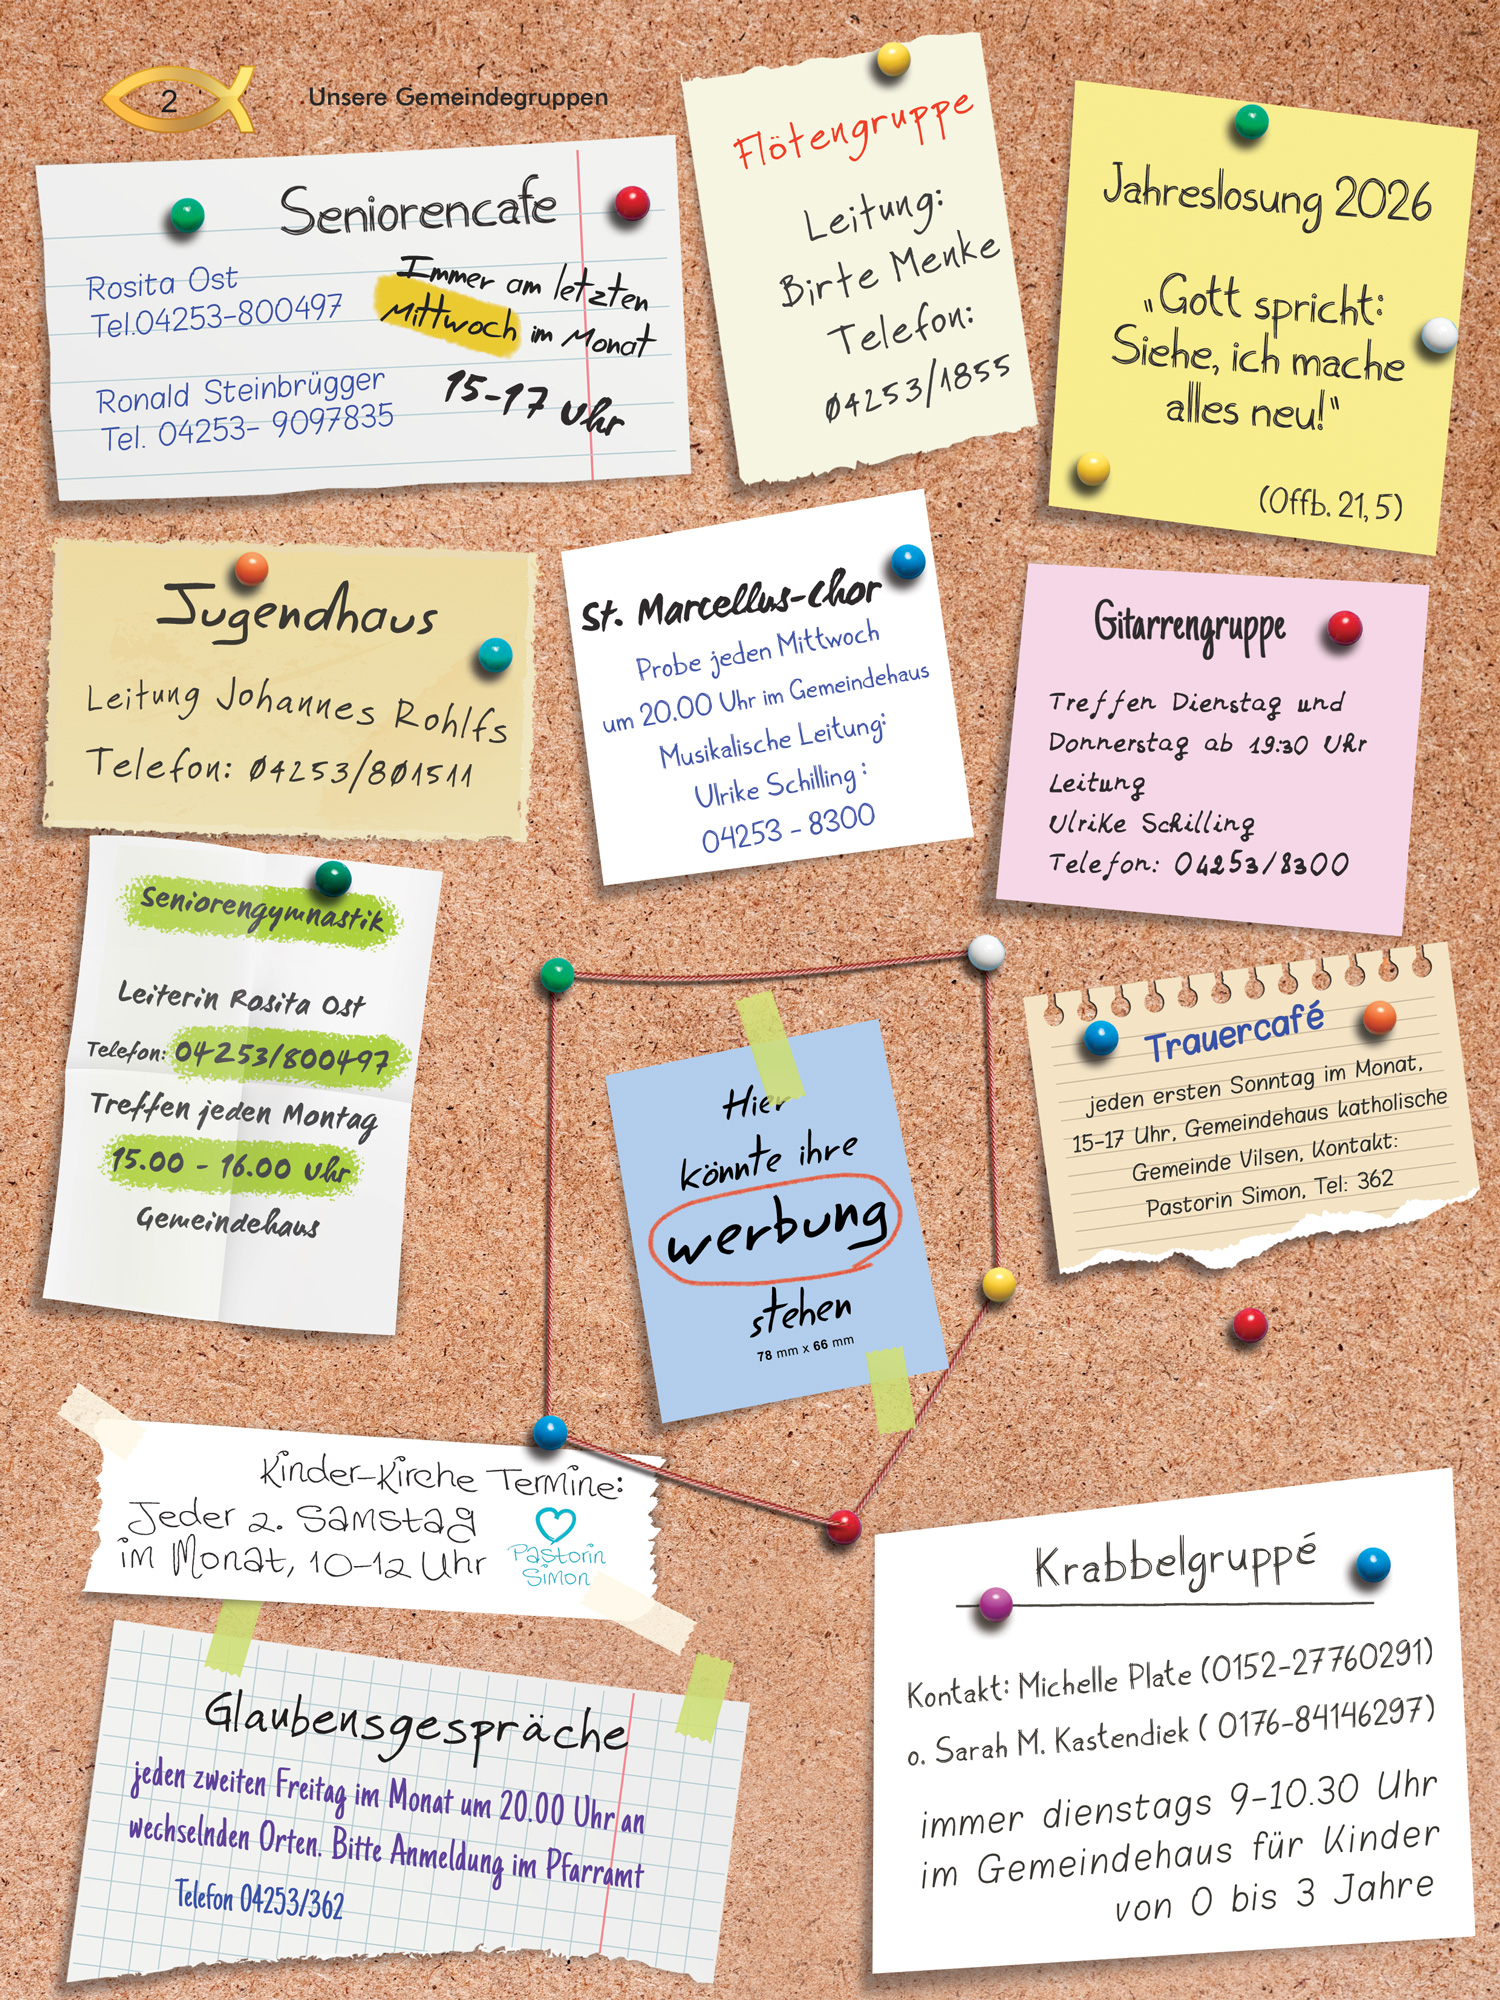 2
Unsere Gemeindegruppen
Seniorencafe
Rosita Ost
Tel.04253-800497
Ronald Steinbrügger
Tel. 04253- 9097835
Immer am letzten
Mittwoch im Monat
15-17 Uhr
Flötengruppe
Leitung:
Birte Menke
Telefon:
04253/1855
Jahreslosung 2026
„Gott spricht:
Siehe, ich mache
alles neu!"
(Offb. 21, 5)
Jugendhaus
Leitung Johannes Rohlfs
Telefon: 04253/801511
St. Marcellus-Chor
Probe jeden Mittwoch
um 20.00 Uhr im Gemeindehaus
Musikalische Leitung:
Ulrike Schilling :
04253 - 8300
Gitarrengruppe
Treffen Dienstag und
Donnerstag ab 19:30 Uhr
Leitung
Ulrike Schilling
Telefon: 04253/8300
Seniorengymnastik
Leiterin Rosita Ost
Telefon: 04253/800497
Treffen jeden Montag
15.00 - 16.00 Uhr
Gemeindehaus
Hier
könnte ihre
werbung
stehen
78 mm x 66 mm
Trauercafé
jeden ersten Sonntag im Monat,
15-17 Uhr, Gemeindehaus katholische
Gemeinde Vilsen, Kontakt:
Pastorin Simon, Tel: 362
Kinder-Kirche Termine:
Jeder 2. Samstag
im Monat, 10-12 Uhr
Pastorin
Simon
Glaubensgespräche
jeden zweiten Freitag im Monat um 20.00 Uhr an
wechselnden Orten. Bitte Anmeldung im Pfarramt
Telefon 04253/362
Krabbelgruppé
Kontakt: Michelle Plate (0152-27760291)
o. Sarah M. Kastendiek ( 0176-84146297)
immer dienstags 9-10.30 Uhr
im Gemeindehaus für Kinder
von 0 bis 3 Jahre